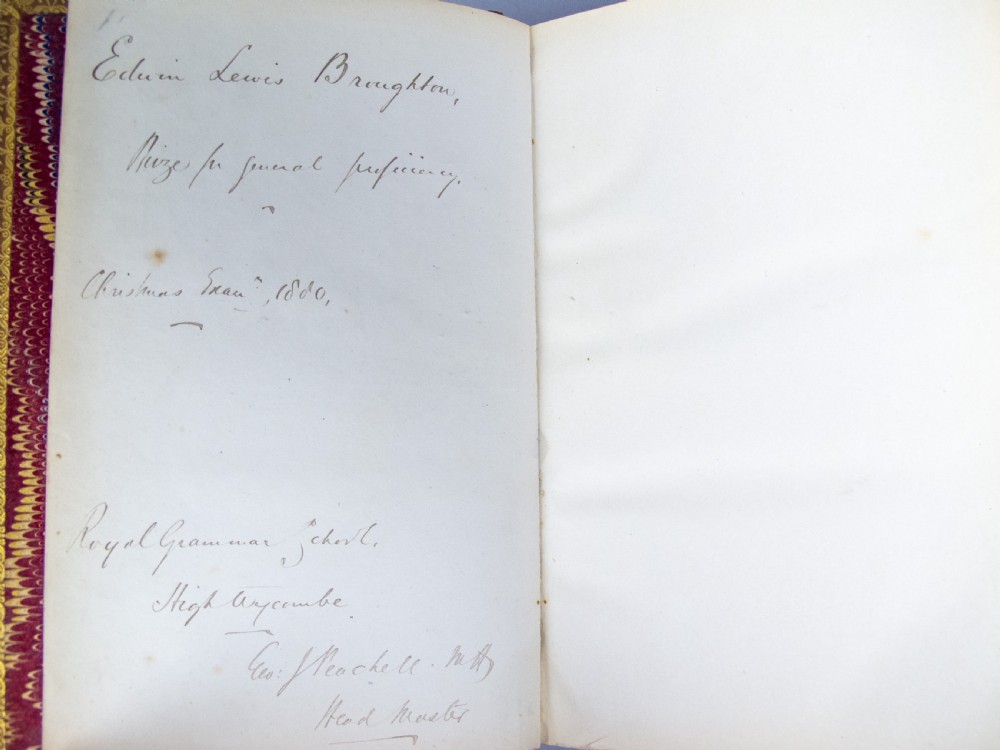 Edwin Lewis Broughton,
Prize for general proficiency.
Christmas Examⁿ, 1880,
Royal Grammar School,
High Wycombe
Geo: J Peachell. MA
Head Master